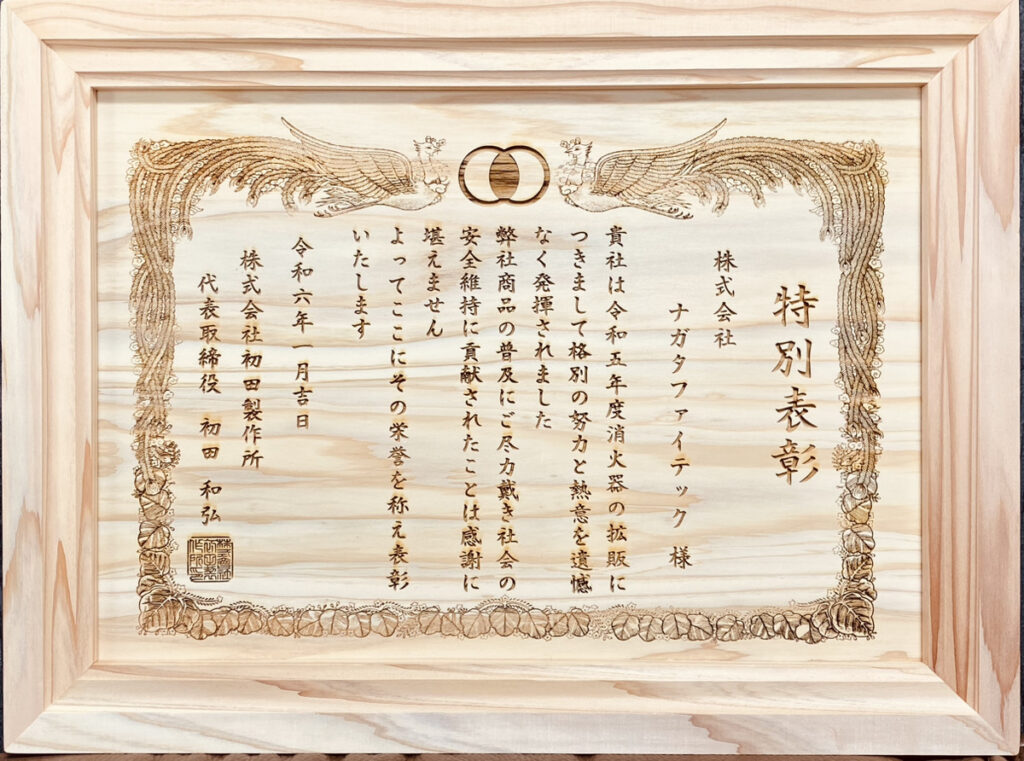 特別表彰
株式会社
ナガタファイテック 様
貴社は令和五年度消火器の拡販に
つきまして格別の努力と熱意を遺憾
なく発揮されました
弊社商品の普及にご尽力戴き社会の
安全維持に貢献されたことは感謝に
堪えません
よってここにその栄誉を称え表彰
いたします
令和六年一月吉日
株式会社初田製作所
代表取締役 初田 和弘